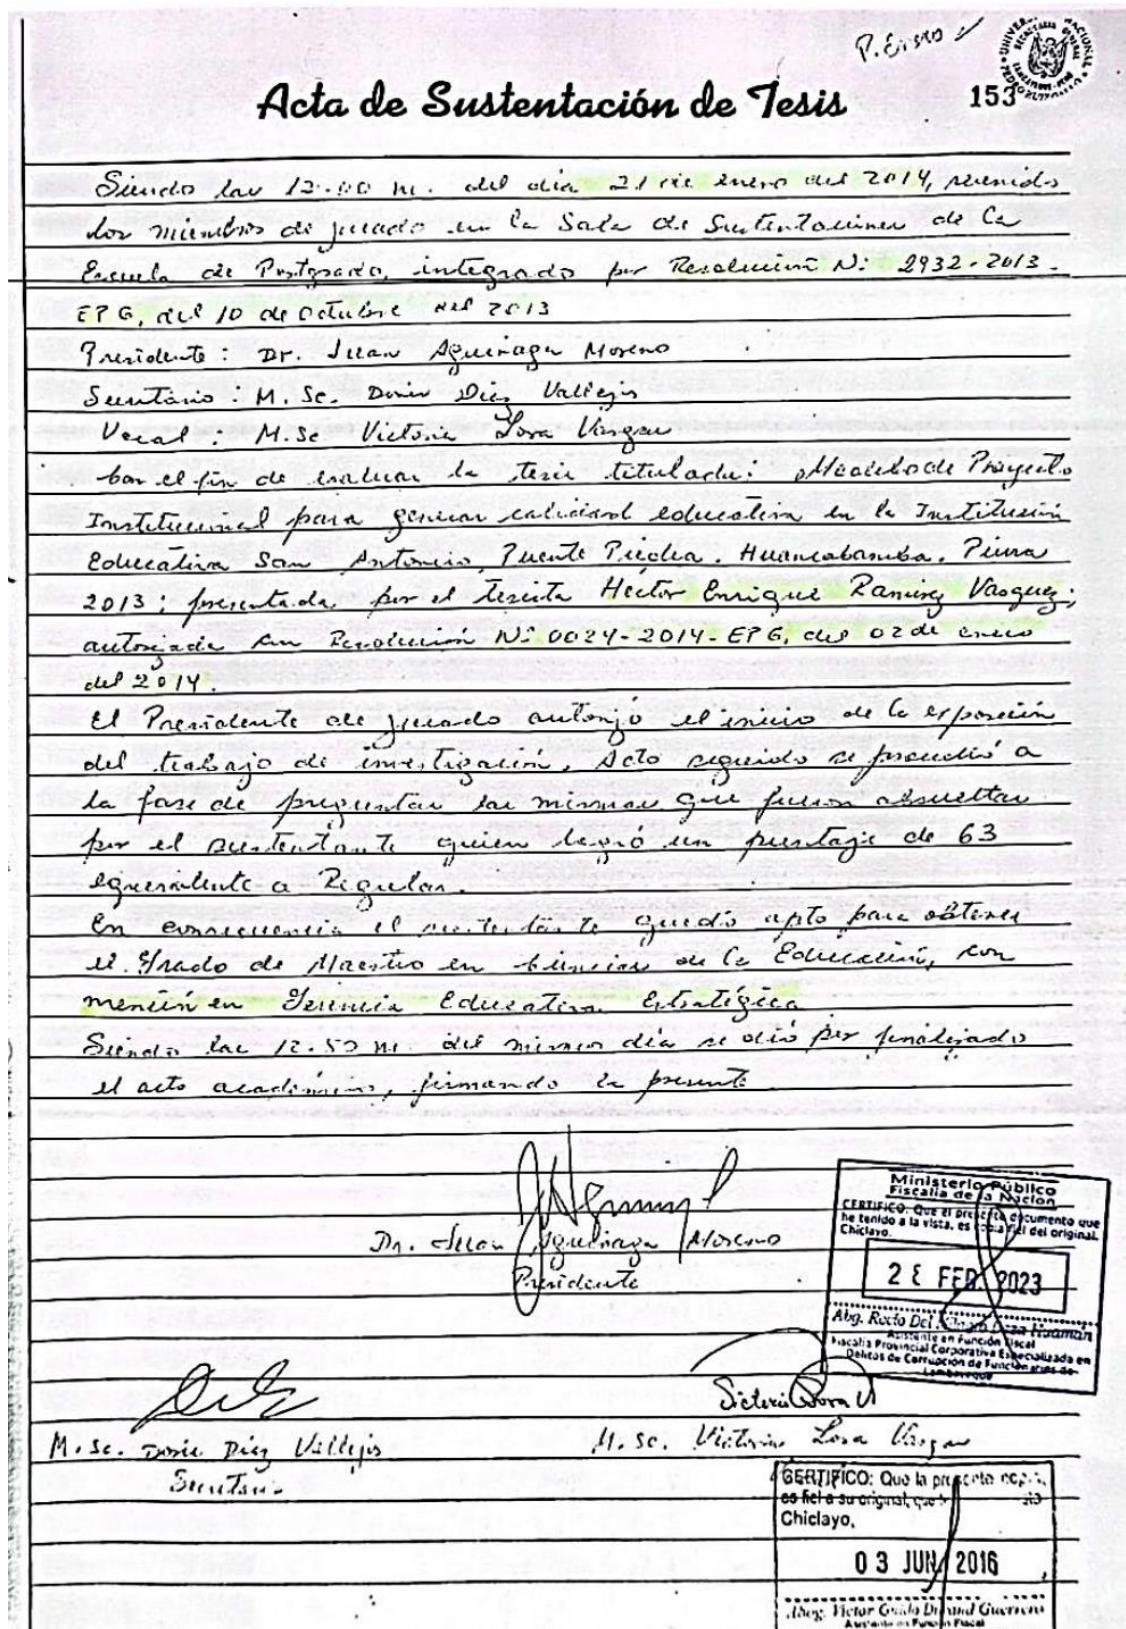 P. Eisso
153
Acta de Sustentación de Tesis
Siendo las 12:00 m. del día 21 de enero del 2014, reunido
los miembros de jurado en la Sala de Sustentaciones de la
Escuela de Postgrado, integrado por Resolución N: 2932-2013-
EPG, del 10 de Octubre del 2013
Presidente: Dr. Juan Aguinaga Moreno
Secretario: M. Sc. Doris Diez Vallejos
Vocal: M. Sc. Victoria Lora Vargas
Con el fin de evaluar la tesis titulada: Modelo de Proyecto
Institucional para generar calidad educativa en la Institución
Educativa San Antonio, Puente Piedra. Huancabamba. Piura
2013; presentada por el tesista Hector Enrique Ramirez Vasquez;
autorizada con Resolución N: 0024-2014-EPG, del 02 de enero
del 2014.
El Presidente de jurado autorizó el inicio de la exposición
del trabajo de investigación. Acto seguido se procedió a
la fase de preguntas las mismas que fueron absueltas
por el sustentante quien logró un puntaje de 63
equivalente a Regular.
En consecuencia el sustentante quedó apto para obtener
el Grado de Maestro en Ciencias de la Educación, con
mención en Gerencia Educativa Estratégica
Siendo las 12:50 m. del mismo día se dió por finalizado
el acto académico, firmando la presente
Dr. Juan Aguinaga Moreno
Presidente
Ministerio Público
Fiscalía de la Nación
CERTIFICO: Que el presente documento que
he tenido a la vista, es copia fiel del original.
Chiclayo.
FEB. 2023
Abg. Rocío Del Huamán
Asistente en Función Fiscal
Fiscalía Provincial Corporativa Especializada en
Delitos de Corrupción de Funcionarios de
Lambayeque
Victoria Lora V
M. Sc. Doris Diez Vallejos
Secretaria
M. Sc. Victoria Lora Vargas
CERTIFICO: Que la presente copia,
es fiel a su original, que
Chiclayo,
03 JUN 2016
Abog. Victor Guido Durand Guerrero
Asistente en Función Fiscal